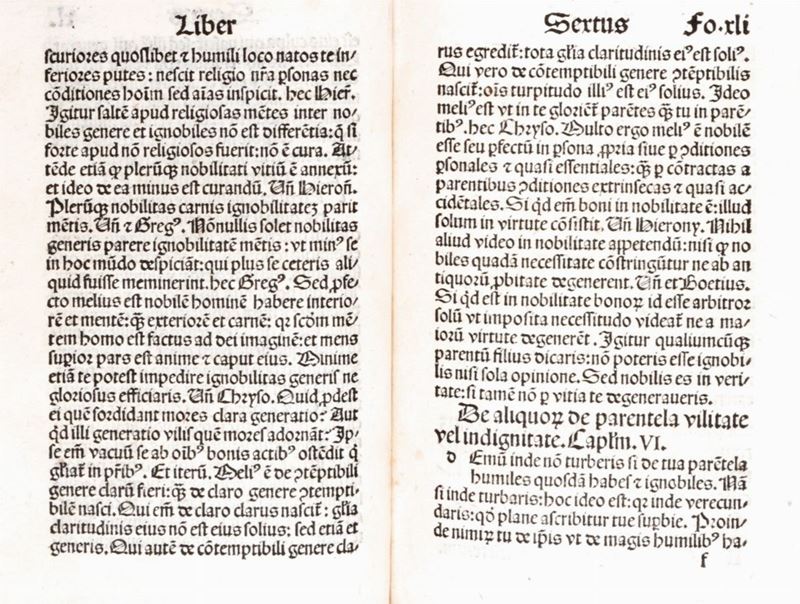 Liber
scuriores quoslibet ⁊ humili loco natos te in/
feriores putes: nescit religio nr̃a ꝑsonas nec
cõditiones hoĩm sed aĩas inspicit. hec Hierõ.
Igitur saltẽ apud religiosas mẽtes inter no/
biles genere et ignobiles nõ est differẽtia: ꝙ si
forte apud nõ religiosos fuerit: nõ ẽ cura. At/
tẽde etiã ꝙ plerũqꝫ nobilitati vitiũ ẽ annexũ:
et ideo de ea minus est curandũ. Vñ Hieroñ.
Plerũqꝫ nobilitas carnis ignobilitateꝫ parit
mẽtis. Vñ ⁊ Gregꝰ. Nõnullis solet nobilitas
generis parere ignobilitatẽ mẽtis: vt minꝰ se
in hoc mũdo despiciãt: qui plus se ceteris ali/
quid fuisse meminerint. hec Gregꝰ. Sed ꝓfe/
cto melius est nobilẽ hominẽ habere interio/
rẽ et mentẽ: ꝙ̃ exteriorẽ et carnẽ: qꝛ scðm mẽ/
tem homo est factus ad dei imaginẽ: et mens
suꝑior pars est anime ⁊ caput eius. Minime
etiã te potest impedire ignobilitas generis ne
gloriosus efficiaris. Vñ Chryso. Quid ꝓdest
ei quẽ sordidant mores clara generatio? Aut
qd̃ illi generatio vilis quẽ mores adornãt? Ip/
se em̃ vacuũ se ab oĩbꝰ bonis actibꝰ ostẽdit ꝙ
gl̃iat̃ in pr̃ibꝰ. Et iterũ. Meliꝰ ẽ de ꝯtẽptibili
genere clarũ fieri: ꝙ̃ de claro genere ꝯtempti/
bilẽ nasci. Qui em̃ de claro clarus nascit̃: gl̃ia
claritudinis eius nõ est eius solius: sed etiã et
generis. Qui autẽ de cõtemptibili genere cla/
Sextus Fo.xli
rus egredit̃: tota gl̃ia claritudinis eiꝰ est soliꝰ.
Qui vero de cõtemptibili genere ꝯtẽptibilis
nascit̃: oĩs turpitudo illiꝰ est eiꝰ solius. Ideo
meliꝰ est vt in te gloriẽt̃ parẽtes ꝙ̃ tu in parẽ/
tibꝰ. hec Chryso. Multo ergo meliꝰ ẽ nobilẽ
esse seu ꝑfectũ in ꝑsona ꝓpria siue ꝑ ꝯditiones
ꝑsonales ⁊ quasi essentiales: ꝙ̃ ꝑ cõtractas a
parentibus ꝯditiones extrinsecas ⁊ quasi ac/
cidẽtales. Si qd̃ em̃ boni in nobilitate ẽ: illud
solum in virtute cõsistit. Vñ Hierony. Nihil
aliud video in nobilitate appetendũ: nisi ꝙ no
biles quadã necessitate cõstringũtur ne ab an
tiquorũ ꝓbitate degenerent. Vñ et Boetius.
Si qd̃ est in nobilitate bonoꝝ id esse arbitror
solũ vt imposita necessitudo videat̃ ne a ma/
iorũ virtute degenerẽt. Igitur qualiumcũqꝫ
parentũ filius dicaris: nõ poteris esse ignobi/
lis nisi sola opinione. Sed nobilis es in veri/
tate: si tamẽ nõ ꝑ vitia te degeneraueris.
De aliquoꝝ de parentela vilitate
vel indignitate. Capl̃m. VI.
d Emũ inde nõ turberis si de tua parẽtela
humiles quosdã habes ⁊ ignobiles. Nã
si inde turbaris: hoc ideo est: qꝛ inde verecun/
daris: qd̃ plane ascribitur tue suꝑbie. Proin/
de nimiꝝ tu de ip̃is vt de magis humilibꝰ ha/
f